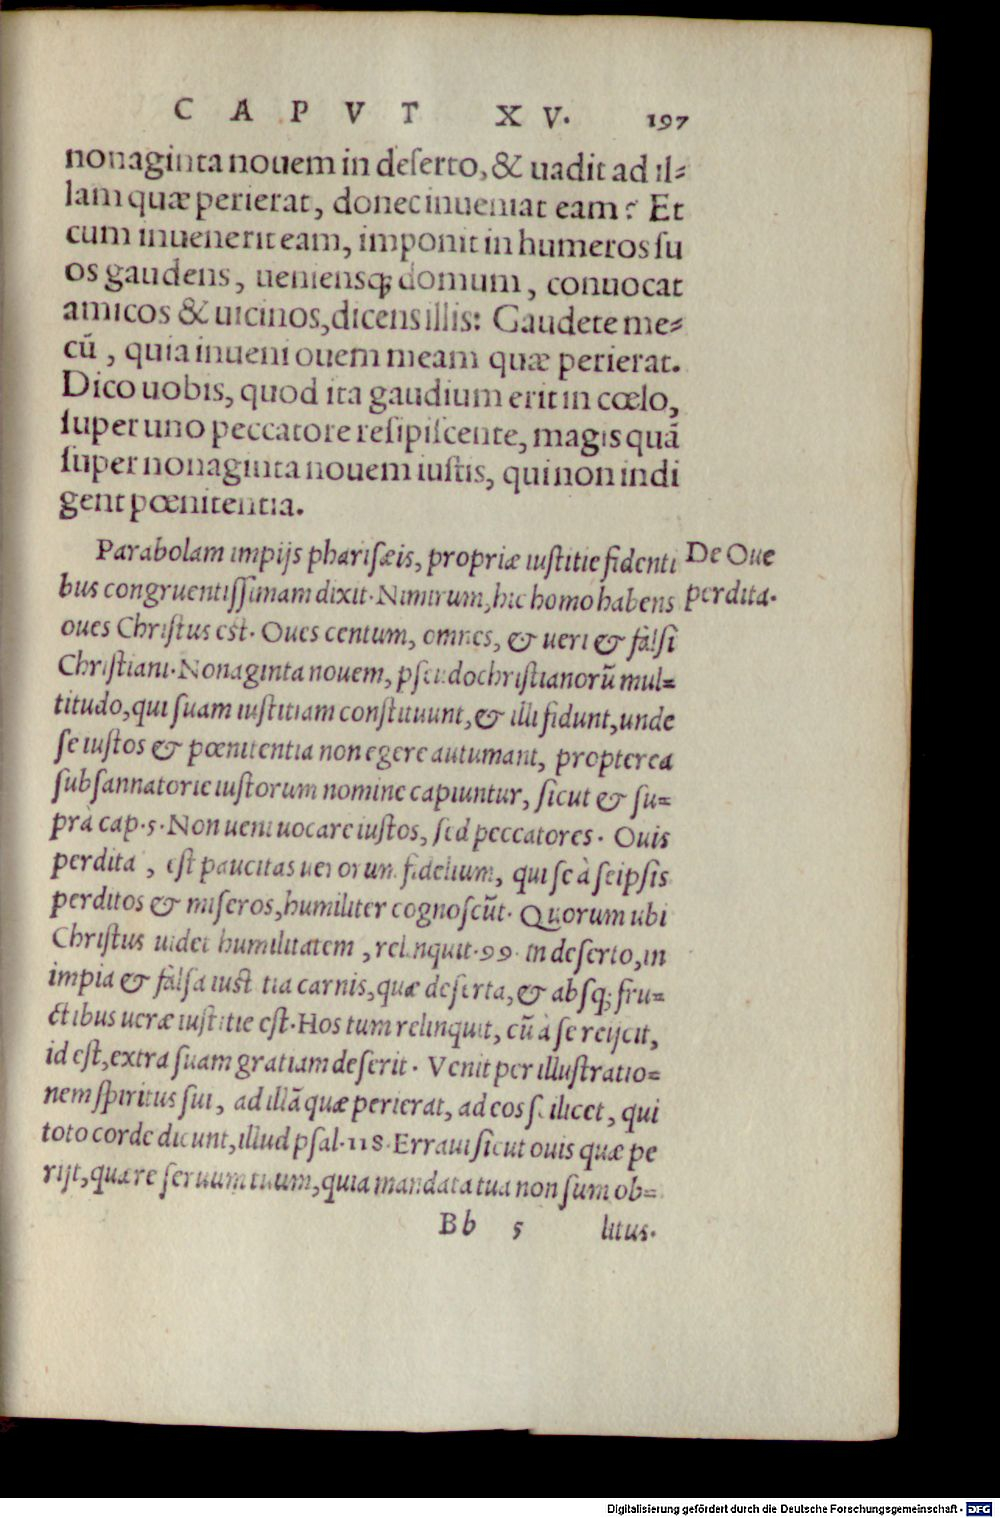 CAPVT XV. 197
nonaginta nouem in deserto, & uadit ad il-
lam quæ perierat, donec inueniat eam? Et
cum inuenerit eam, imponit in humeros su
os gaudens, ueniensq; domum, conuocat
amicos & uicinos, dicens illis: Gaudete me-
cũ, quia inueni ouem meam quæ perierat.
Dico uobis, quod ita gaudium erit in cœlo,
super uno peccatore resipiscente, magis quã
super nonaginta nouem iustis, qui non indi
gent pœnitentia.
Parabolam impijs pharisæis, propriæ iustitie fidenti
bus congruentissimam dixit. Nimirum, hic homo habens
oues Christus est. Oues centum, omnes, & ueri & falsi
Christiani. Nonaginta nouem, pseudochristianorũ mul-
titudo, qui suam iustitiam constituunt, & illi fidunt, unde
se iustos & pœnitentia non egere autumant, propterea
subsannatorie iustorum nomine capiuntur, sicut & su-
prà cap. 5. Non ueni uocare iustos, sed peccatores. Ouis
perdita, est paucitas uerorum fidelium, qui se à seipsis
perditos & miseros, humiliter cognoscũt. Quorum ubi
Christus uidet humilitatem, relinquit. 99. in deserto, in
impia & falsa iustitia carnis, quæ deserta, & absq; fru-
ctibus ueræ iustitie est. Hos tum relinquit, cũ à se reijcit,
id est, extra suam gratiam deserit. Venit per illustratio-
nem spiritus sui, ad illã quæ perierat, ad eos scilicet, qui
toto corde dicunt, illud psal. 118. Erraui sicut ouis quæ pe
rijt, quære seruum tuum, quia mandata tua non sum ob-
Bb 5 litus.
De Oue
perdita.
Digitalisierung gefördert durch die Deutsche Forschungsgemeinschaft - DFG